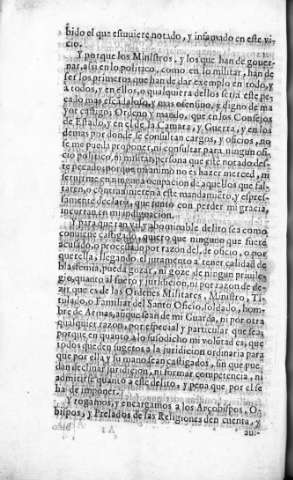 bido el que estuuiere notado, y infamado en este vi-
cio.
Y porque los Ministros, y los que han de gouer-
nar, assi en lo politico, como en lo militar, han de
ser los primeros que han de dar exemplo en todo, y
a todos, y en ellos, o qualquiera dellos seria este pe-
cado mas escãdaloso, y mas ofensiuo, y digno de ma
yor castigo; Ordeno y mando, que en los Consejos
de Estado, y en el de la Camara, y Guerra, y en los
demas por donde se consultan cargos, y oficios, no
se me pueda proponer, ni consultar para ningun ofi-
cio politico, ni militar persona que estè notado des-
te pecado; porque mi animo no es hazer merced, ni
seruirme en ninguna ocupacion de aquellos que fal-
taren, o contrauinieren a este mandamiẽto, y expres-
samente declaro, que junto con perder mi gracia,
incurran en mi indignacion.
Y para que tan vil y abominable delito sea como
conuiene castigado, quiero que ninguno que fuere
acusado, o procedido por razon del, de oficio, o por
querella, llegando el juramento a tener calidad de
blasfemia, pueda gozar, ni goze de ningun priuile-
gio, quanto al fuero y juridicion, ni por razon de de-
zir que es de las Ordenes Militares, Ministro, Ti-
tulado, o Familiar del Santo Oficio, soldado, hom-
bre de Armas, aũque seãn de mi Guarda, ni por otra
qualquier razon, por especial y particular que sea;
porque en quanto a lo susodicho mi volũtad es, que
todos queden sugetos a la juridicion ordinaria para
que por ella, y su mano sean castigados, sin que pue-
dan declinar juridicion, ni formar competencia, ni
admitirse quanto a este delito, y pena que por el se
ha de imponer.
Y rogamos, y encargamos a los Arçobispos, O-
bispos, y Prelados de las Religiones den cuenta, y